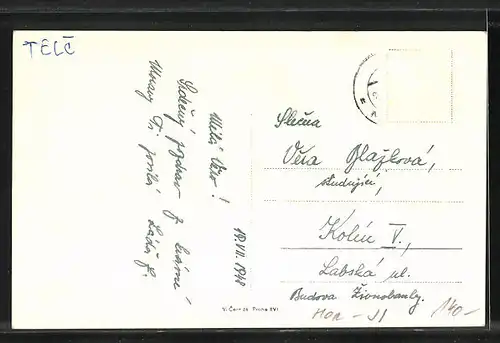 TELČ
Milá Věro!
Srdečný pozdrav z krásné
Moravy Ti posílá Láďa J.
19.VII.1948
Slečna
Věra Blažková,
studující,
Kolín V.,
Labská ul.
Budova Živnobanky.
V. Černák Praha XVI
140-